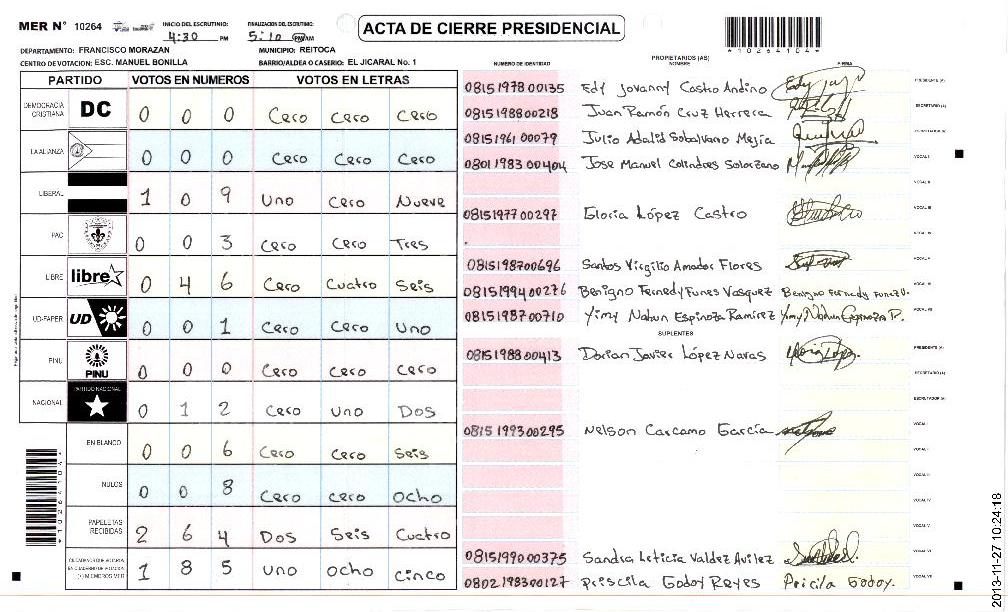 MER N° 10264
INICIO DEL ESCRUTINIO: 4:30 PM
FINALIZACION DEL ESCRUTINIO: 5:10 PM AM
ACTA DE CIERRE PRESIDENCIAL
*10264104*
DEPARTAMENTO: FRANCISCO MORAZAN MUNICIPIO: REITOCA
CENTRO DE VOTACION: ESC. MANUEL BONILLA BARRIO/ALDEA O CASERIO: EL JICARAL No. 1
PARTIDO VOTOS EN NUMEROS VOTOS EN LETRAS
DEMOCRACIA CRISTIANA DC 0 0 0 Cero Cero Cero
LA ALIANZA 0 0 0 Cero Cero Cero
LIBERAL 1 0 9 Uno Cero Nueve
PAC 0 0 3 Cero Cero Tres
LIBRE libre 0 4 6 Cero Cuatro Seis
UD-FAPER UD 0 0 1 Cero Cero Uno
PINU PINU 0 0 0 Cero Cero Cero
NACIONAL PARTIDO NACIONAL 0 1 2 Cero Uno Dos
EN BLANCO 0 0 6 Cero Cero Seis
NULOS 0 0 8 Cero Cero Ocho
PAPELETAS RECIBIDAS 2 6 4 Dos Seis Cuatro
1 8 5 Uno Ocho Cinco
NUMERO DE IDENTIDAD PROPIETARIOS (AS) NOMBRE FIRMA
0815197800135 Edy Jovanny Castro Andino PRESIDENTE (A)
0815198800218 Juan Ramón Cruz Herrera SECRETARIO (A)
0815196100079 Julio Adalid Sobalvarro Mejía ESCRUTADOR (A)
0801198300404 Jose Manuel Colindres Solorzano VOCAL I
VOCAL II
0815197700297 Gloria López Castro VOCAL III
VOCAL IV
0815198700696 Santos Virgilio Amador Flores VOCAL V
0815199400276 Benigno Fernedy Funes Vasquez Benigno Fernedy Funez V. VOCAL VI
0815198700710 Yimy Nahun Espinoza Ramirez Yimy Nahun Espinoza R. VOCAL VII
SUPLENTES
0815198800413 Dorian Javier López Navas PRESIDENTE (A)
SECRETARIO (A)
ESCRUTADOR (A)
0815199300295 Nelson Carcamo García VOCAL I
VOCAL II
VOCAL III
VOCAL IV
VOCAL V
0815199000375 Sandra Leticia Valdez Avilez VOCAL VI
0802198300127 Priscila Godoy Reyes Pricila Godoy. VOCAL VII
*10264104*
2013-11-27 10:24:18